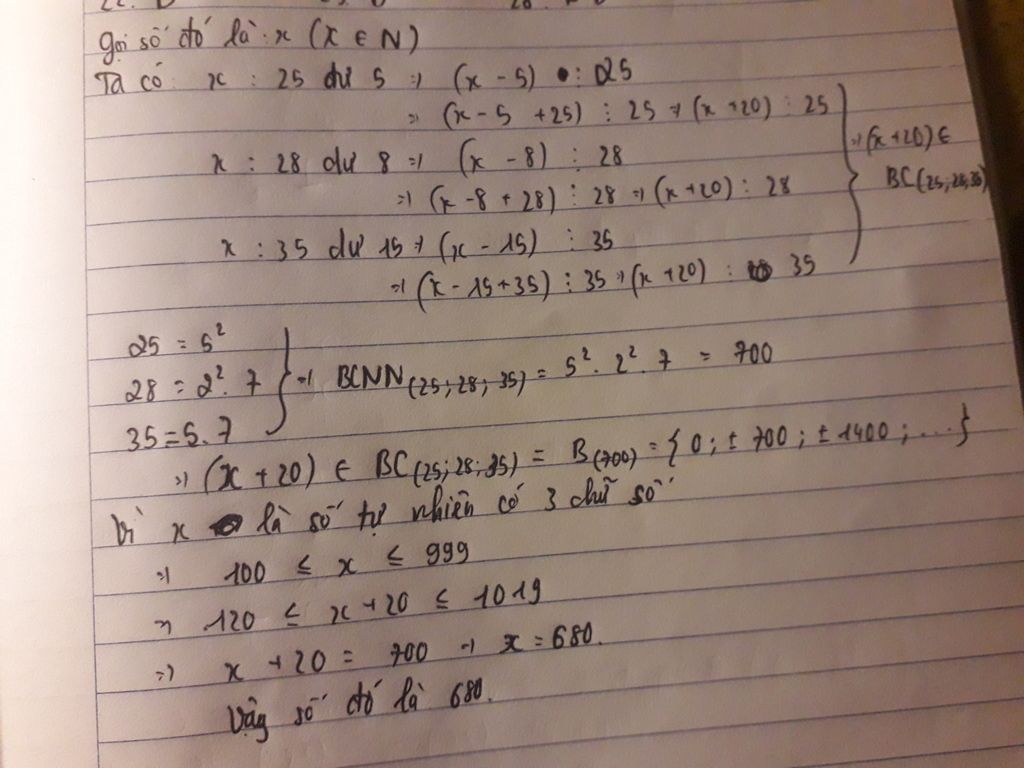 gọi số đó là x (x ∈ N)
Ta có x : 25 dư 5 => (x - 5) ⋮ 25
=> (x - 5 + 25) ⋮ 25 => (x + 20) ⋮ 25
x : 28 dư 8 => (x - 8) ⋮ 28
=> (x - 8 + 28) ⋮ 28 => (x + 20) ⋮ 28
x : 35 dư 15 => (x - 15) ⋮ 35
=> (x - 15 + 35) ⋮ 35 => (x + 20) ⋮ 35
=> (x + 20) ∈
BC(25; 28; 35)
25 = 5²
28 = 2² . 7
35 = 5 . 7
=> BCNN(25; 28; 35) = 5² . 2² . 7 = 700
=> (x + 20) ∈ BC(25; 28; 35) = B(700) = { 0 ; ± 700 ; ± 1400 ; ... }
Vì x là số tự nhiên có 3 chữ số
=> 100 ≤ x ≤ 999
=> 120 ≤ x + 20 ≤ 1019
=> x + 20 = 700 => x = 680.
Vậy số đó là 680.